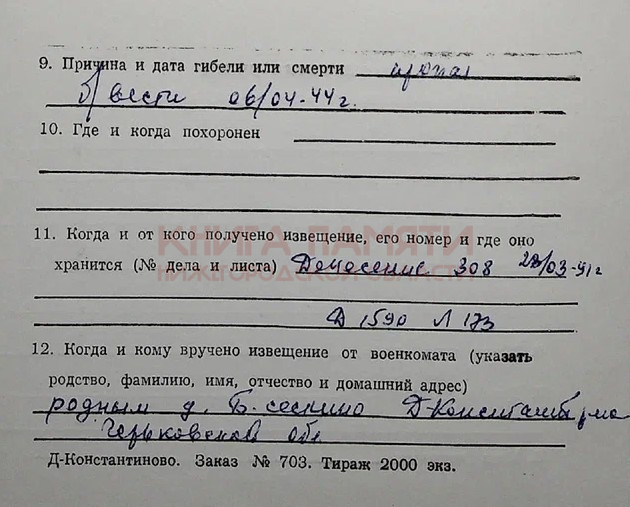 9. Причина и дата гибели или смерти пропал
б/вести 06/04-44 г.
10. Где и когда похоронен
КНИГА ПАМЯТИ
НИЖЕГОРОДСКОЙ ОБЛАСТИ
11. Когда и от кого получено извещение, его номер и где оно
хранится (№ дела и листа) Донесение 308 /03-91 г
Д 1590 Л 173
12. Когда и кому вручено извещение от военкомата (указать
родство, фамилию, имя, отчество и домашний адрес)
родным д. Б. Д-Константин р-на
Горьковской обл
Д-Константиново. Заказ № 703. Тираж 2000 экз.